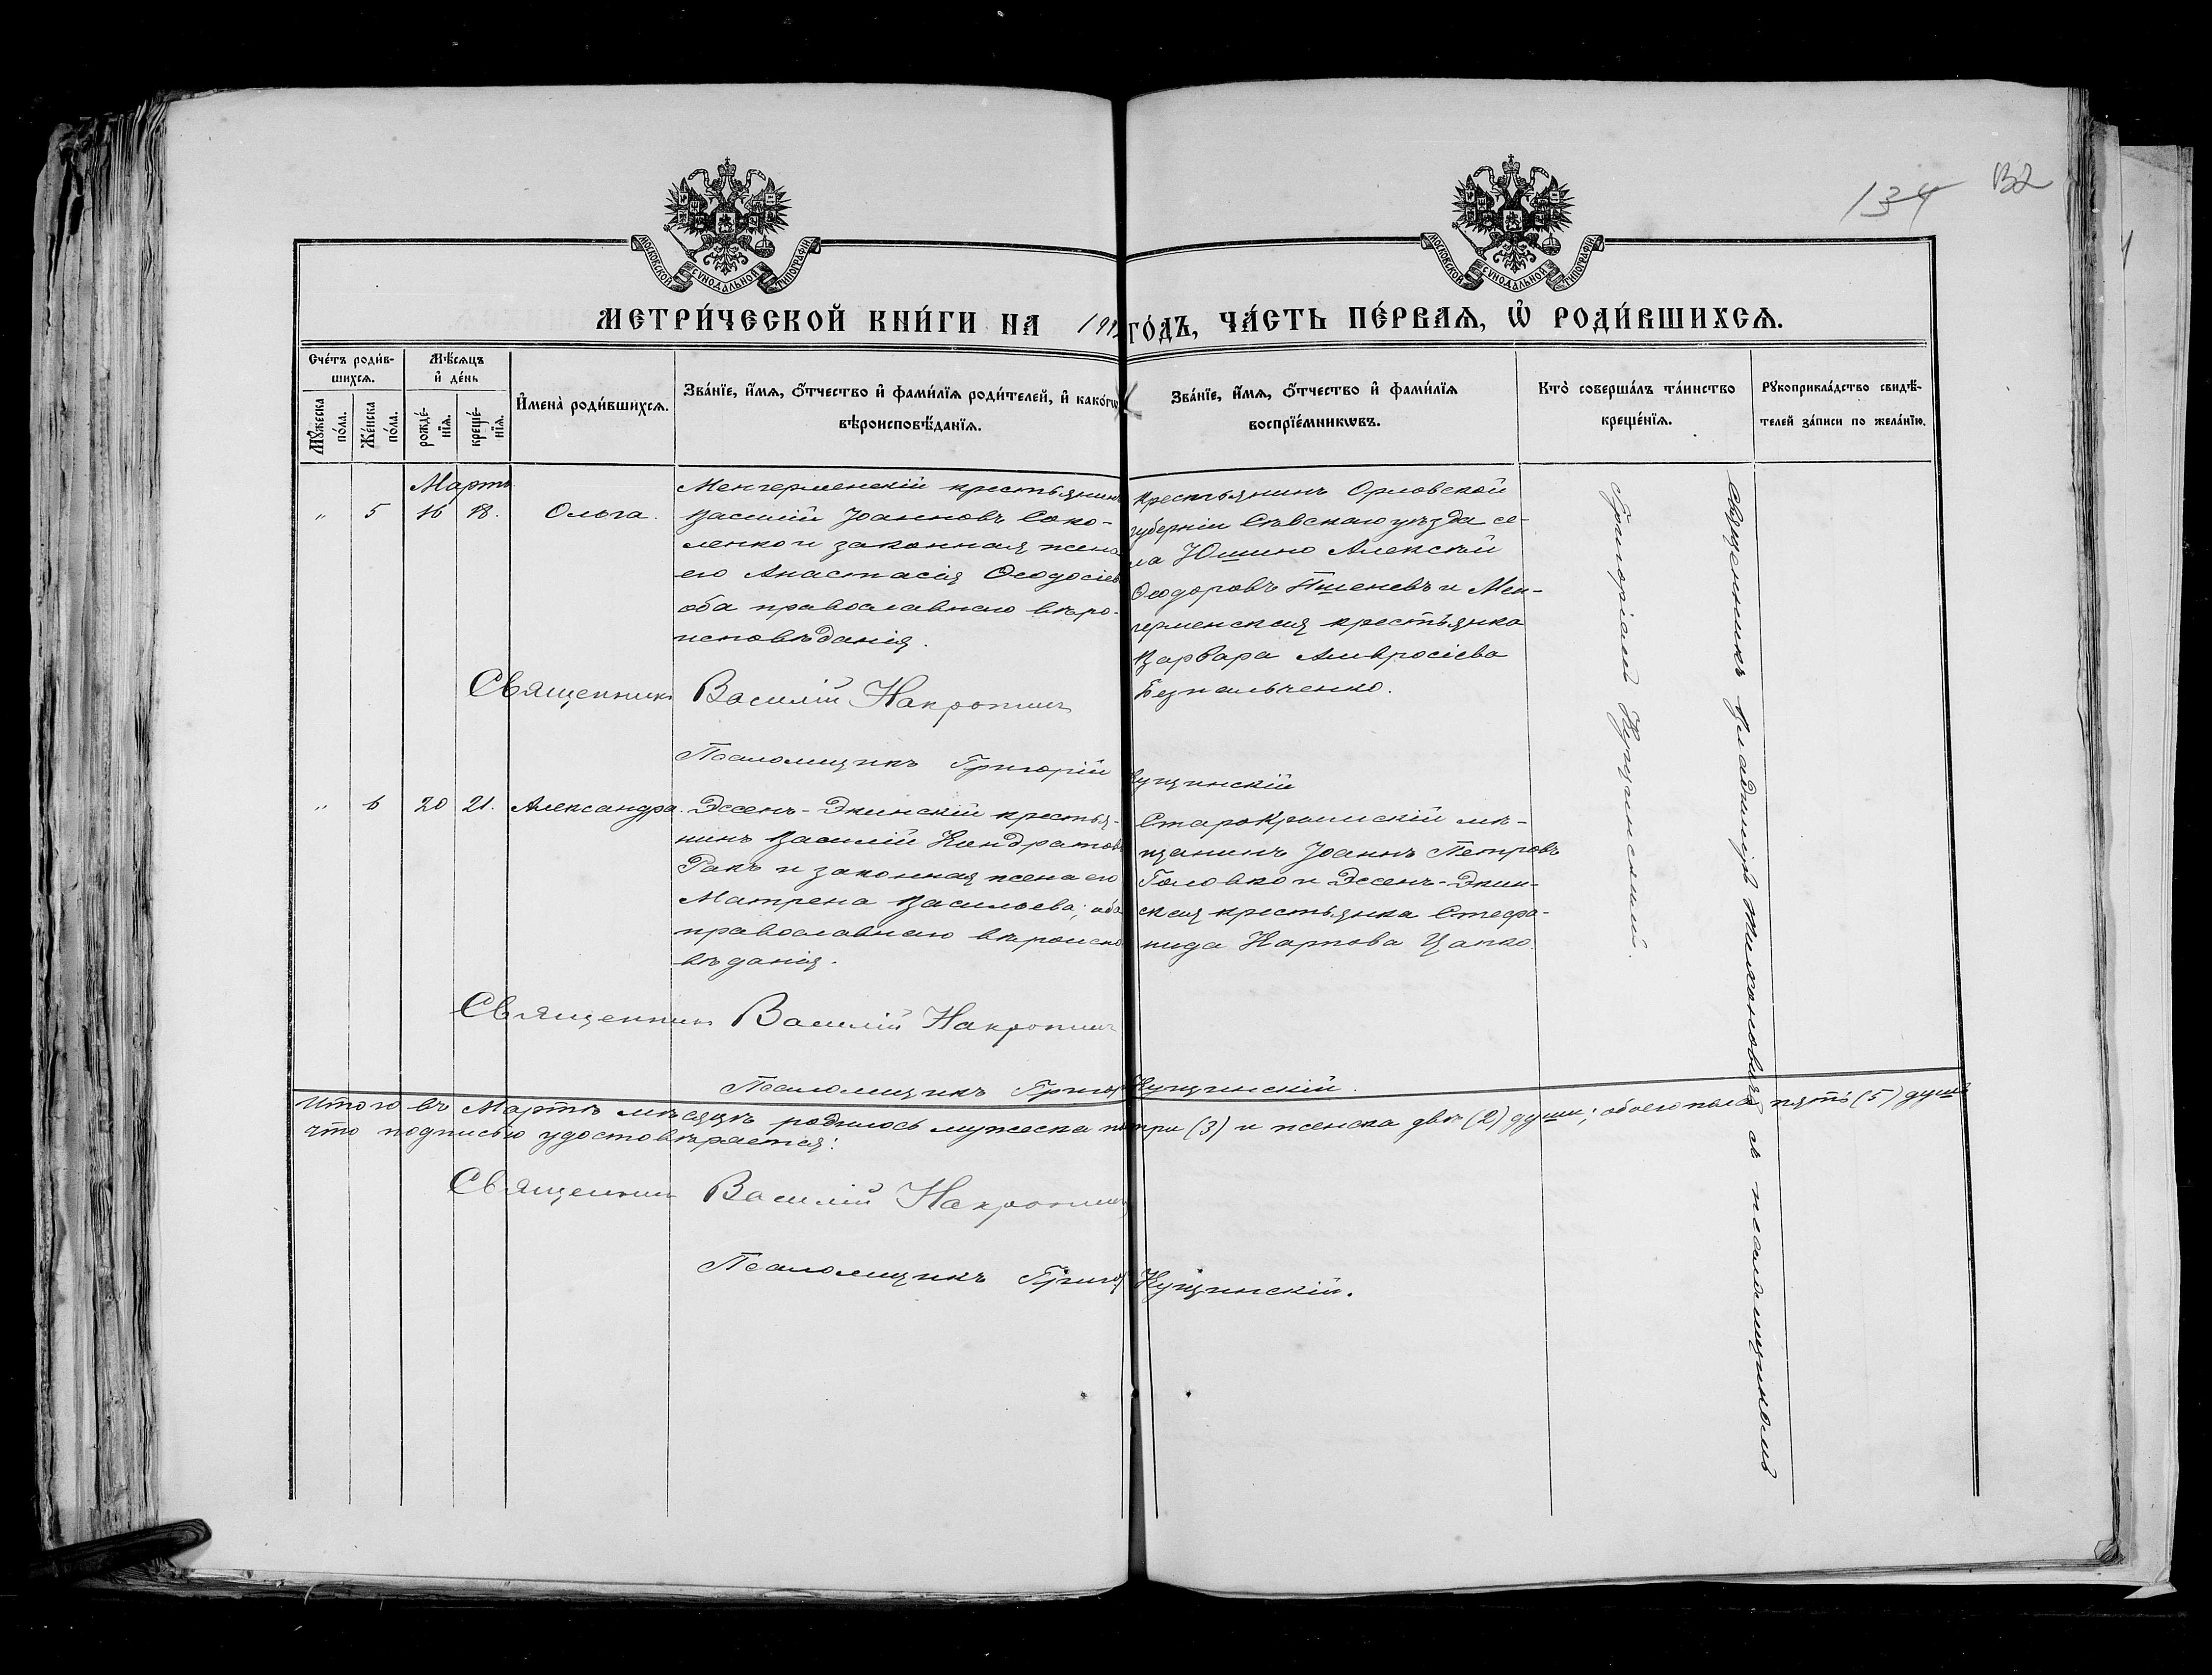 134 132
МОСКОВСКОЙ СѴНОДАЛЬНОЙ ТИПОГРАФІИ
МОСКОВСКОЙ СѴНОДАЛЬНОЙ ТИПОГРАФІИ
МЕТРИ́ЧЕСКОЙ КНИ́ГИ НА 191 ГО́ДЪ, ЧА́СТЬ ПЕ́РВАѦ, Ѡ҆ РОДИ́ВШИХСѦ.
Сче́тъ роди́вшихсѧ.
Мꙋ́жеска по́ла.
Же́нска по́ла.
Мѣ́сѧцъ и҆ де́нь
рожде́нїѧ.
креще́нїѧ.
И҆мена̀ роди́вшихсѧ.
Зва́нїе, и҆́мѧ, ѻ҆́тчество и҆ фами́лїѧ роди́телей, и҆ како́гѡ
вѣроисповѣ́данїѧ.
Зва́нїе, и҆́мѧ, ѻ҆́тчество и҆ фами́лїѧ
воспрїе́мникѡвъ.
Кто̀ соверша́лъ та́инство
креще́нїѧ.
Рꙋкоприкла́дство свидѣ́-
телей за́писи по жела́нїю.
Мартъ
" 5 16 18. Ольга.
Менгерменскій крестьянинъ
Василій Іоанновъ Соко-
ленко и законная жена
его Анастасія Ѳеодосіев
оба православнаго вѣро-
исповѣданія.
Крестьянинъ Орловской
губерніи Сѣвскаго уѣзда се-
ла Юшино Алексѣй
Ѳеодоровъ Пшеневъ и Мен-
герменская крестьянка
Варвара Амвросіева
Безпальченко.
Священникъ Василій Накропинъ
Псаломщикъ Григорій Кущинскій
" 6 20 21. Александра.
Эссенъ-Экинскій крестья-
нинъ Василій Кондратовъ
Ракъ и законная жена его
Матрена Васильева; оба
православнаго вѣроиспо
вѣданія.
СтароКрымскій мѣ-
щанинъ Іоаннъ Петровъ
Головко и Эссенъ-Экин-
ская крестьянка Стефа-
нида Карпова Цапко
Священникъ Василій Накропинъ
Псаломщикъ Григор Кущинскій.
Священникъ Владиміръ Тихоновичъ съ псаломщикомъ
Григоріемъ Кущинскимъ.
Итого въ Мартѣ мѣсяцѣ родилось мужеска п три (3) и женска двѣ (2) души; обоего пола пять (5) душъ
что подписью удостовѣряется:
Священникъ Василій Накропинъ
Псаломщикъ Григор Кущинскій.